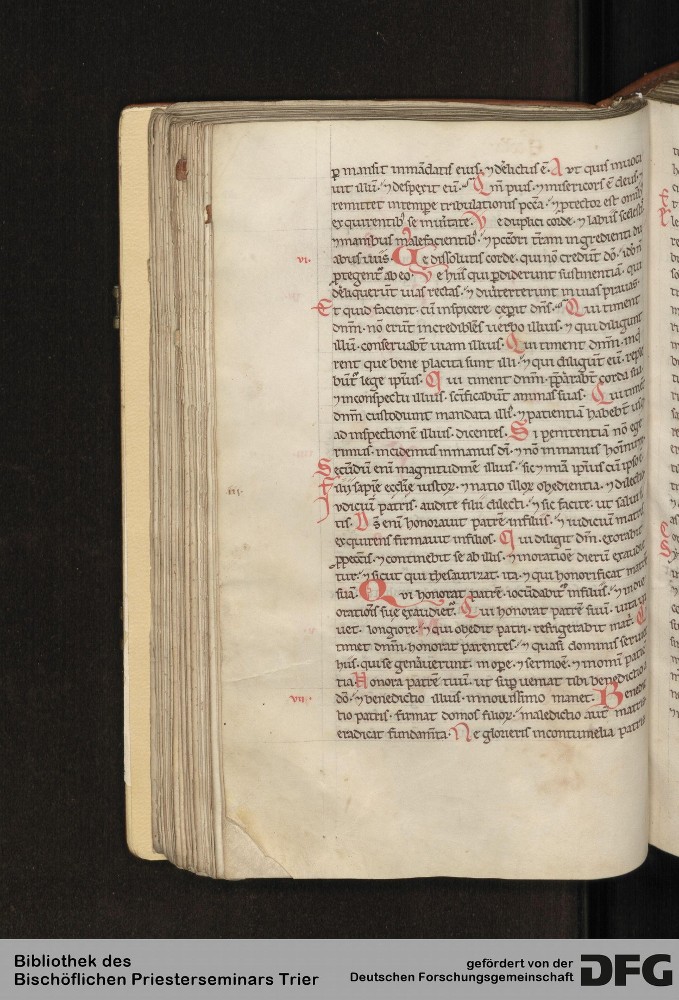 ꝑ mansit in mādatis eius. ⁊ delictus ē. Aut quis inuoca
uit illū. ⁊ despexit eū. Qm̄ pius. ⁊ misericors ē deus. ⁊
remittet in tempe tribulationis pccā. ⁊ ꝓtector est omib;
exquirentib; se in uitate. Ve duplici corde. ⁊ labiis scelestis
⁊ manibus malefacientib;. ⁊ pccōri trram ingredienti du
abus uiis.
vi.
Ve dissolutis corde. qui nō credūt dō.
ꝓtegent ab eo. Ve hiis qui ꝑdiderunt sustinentiā. qui
deliquerūt uias rectas. ⁊ diuterterunt in uias prauas.
Et quid facient. cū inspicere ceperit dn̄s. Qui timent
dnm̄. nō erūt incredibiles uerbo illius. ⁊ qui diligunt
illū. conseruabt uiam illius. Qui timent dnm̄. inqi
rent que bene placita sunt illi. ⁊ qui diligūt eū. reple
būt lege ipius. Qui timent dnm̄. ꝑparabt corda sua
⁊ in conspectu illius. scificabūt animas suas. Qui timet
dnm̄ custodiunt mandata illis. ⁊ patientiā habebt usq
ad inspectionē illius. dicentes. Si penitentiā nō ege
rimus. incidemus in manus dī. ⁊ nō in manus hominum
Secūdū enī magnitudinē illius. sic ⁊ miā ipius cū ipso ē.
iii.
Filii sapiē ecclie iustor. ⁊ natio illor obedientia. ⁊ dilectio
Iudiciū patris. audite filii dilecti. ⁊ sic facite. ut salui si
tis. Ds enī honorauit patrē in filiis. ⁊ iudiciū matris
exquirens firmauit in filios. Qui diligit dm̄. exorabit
ꝓ peccis. ⁊ continebit se ab illis. ⁊ in oratiōe dierū exaudie
tur. ⁊ sicut qui thesaurizat. ita ⁊ qui honorificat matrē
suā. Qui honorat patrē. iocūdabit in filiis. ⁊ in die
orationis sue exaudiet. Qui honorat patrē suū. uita ui
uet. longiore. ⁊ qui obedit patri. refrigerabit mat. Qi
timet dnm̄. honorat parentes. ⁊ quasi dominis seruiet
hiis. qui se genuerunt. in ope. ⁊ sermoē. ⁊ in omi patiē
tia. Honora patrē tuū. ut supueniat tibi benedictio a
vii.
dō. ⁊ benedictio illius. in nouissimo manet. Benedic
tio patris. firmat domos filior. maledictio aut matris
eradicat fundamta. Ne glorieris in contumelia patris
Bibliothek des
Bischöflichen Priesterseminars Trier
gefördert von der
Deutschen Forschungsgemeinschaft
DFG